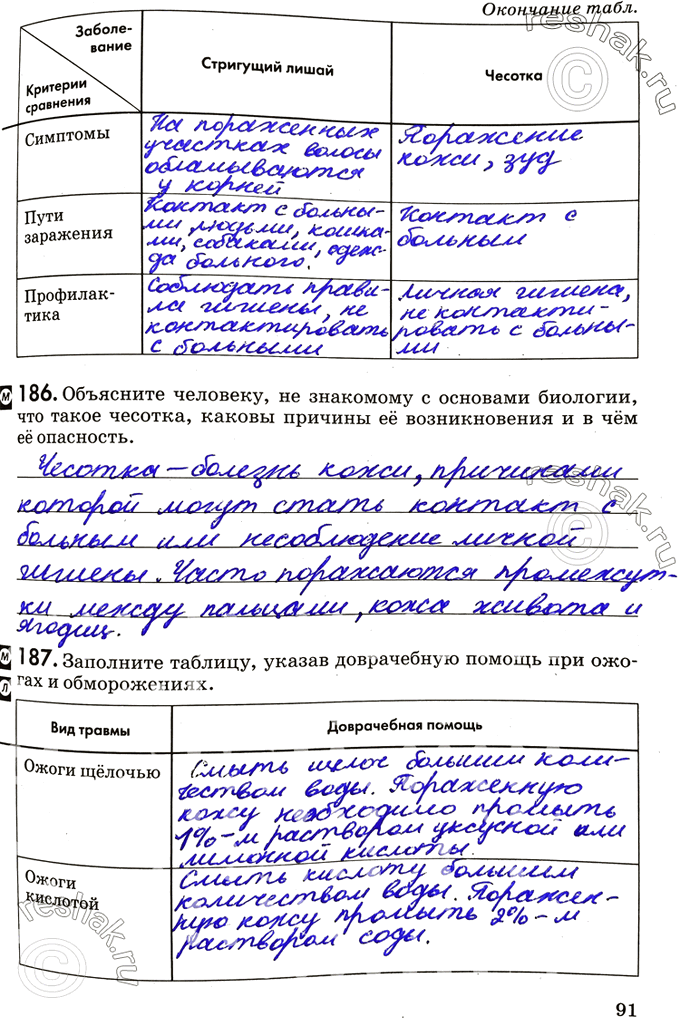 Окончание табл.
Заболе-
вание
Критерии
сравнения
Стригущий лишай
Чесотка
Симптомы
На пораженных
участках волосы
обламываются
у корней
Поражение
кожи, зуд
Пути
заражения
Контакт с больны-
ми людьми, кошка-
ми, собаками, одеж-
да больного.
Контакт с
больным
Профилак-
тика
Соблюдать прави-
ла гигиены, не
контактировать
с больными
Личная гигиена,
не контакти-
ровать с больны-
ми
М
186. Объясните человеку, не знакомому с основами биологии,
что такое чесотка, каковы причины её возникновения и в чём
её опасность.
Чесотка – болезнь кожи, причинами
которой могут стать контакт с
больным или несоблюдение личной
гигиены. Часто поражаются промежут-
ки между пальцами, кожа живота и
ягодиц.
М
Л
187. Заполните таблицу, указав доврачебную помощь при ожо-
гах и обморожениях.
Вид травмы
Доврачебная помощь
Ожоги щёлочью
Смыть щелоч большим коли-
чеством воды. Пораженную
кожу необходимо промыть
1%-м раствором уксусной или
лимонной кислоты.
Ожоги
кислотой
Смыть кислоту большим
количеством воды. Поражен-
ную кожу промыть 2%-м
раствором соды.
91
reshak.ru
reshak.ru
reshak.ru